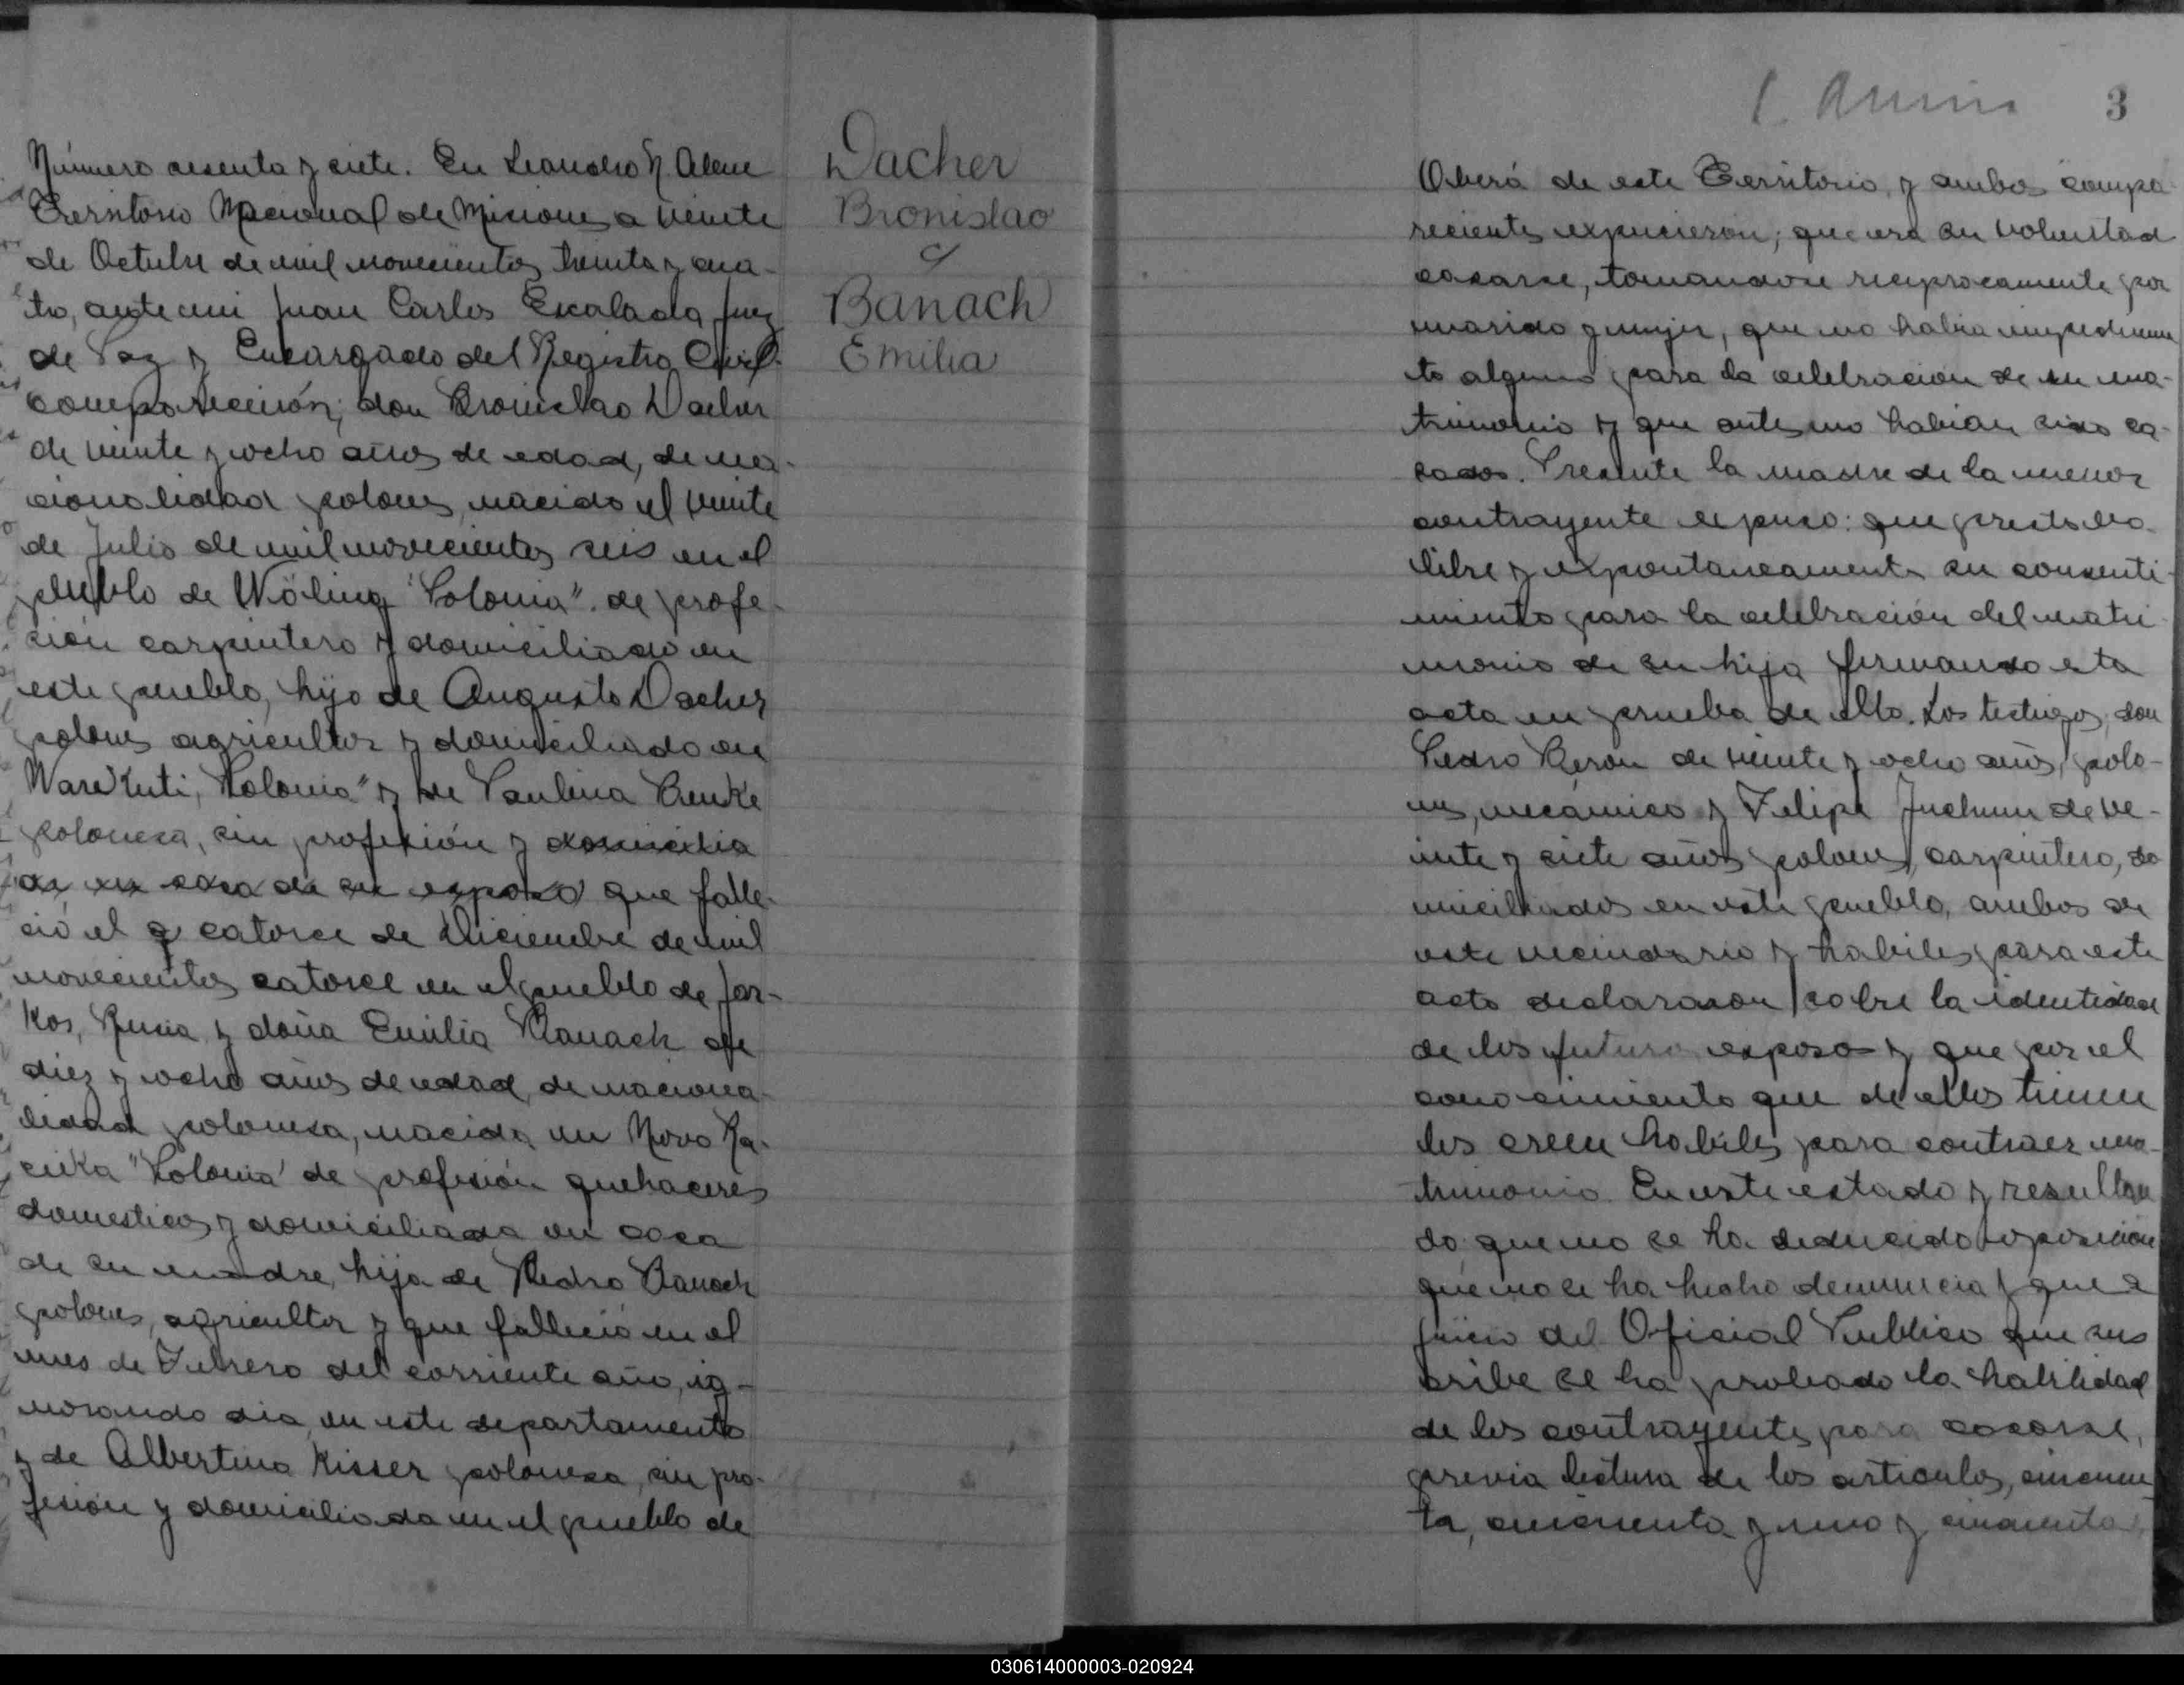 Número sesenta y siete. En Leandro N. Alem
Territorio Nacional de Misiones a veinte
de Octubre de mil novecientos treinta y cua-
tro, ante mi Juan Carlos Escalada Juez
de Paz y Encargado del Registro Civil
comparecieron; don Bronislao Dacher
de veinte y ocho años de edad, de na-
cionalidad polones, nacido el veinte
de Julio de mil novecientos seis en el
pueblo de Wöling "Polonia". de profe-
sión carpintero y domiciliado en
este pueblo, hijo de Augusto Dacher
polones agricultor y domiciliado en
"Polonia" y de Paulina
polonesa, sin profesión y domicilia
da en casa de su esposo que falle-
ció el q catorce de Diciembre de mil
novecientos catorce en el pueblo de Jar-
kos, Rusia y doña Emilia Banach de
diez y ocho años de edad, de naciona-
lidad polonesa, nacida en Novo
"Polonia" de profesión quehaceres
domesticos y domiciliada en casa
de su madre, hija de Pedro Banach
polones, agricultor y que falleció en el
mes de Febrero del corriente año, ig-
norando dia, en este departamento
y de Albertina Kisser polonesa, sin pro-
fesión y domiciliada en el pueblo de
Dacher
Bronislao
y
Banach
Emilia
3
Oberá de este Territorio, y ambos compa-
recientes expusieron; que era su voluntad
casarse, tomandose reciprocamente por
marido y mujer, que no habia impedimen
to alguno para la celebración de su ma-
trimonio y que antes no habian sido ca-
sados. Presente la madre de la menor
contrayente expuso: que presta
libre y expontaneamente su consenti-
miento para la celebración del matri-
monio de su hija firmando esta
acta en prueba de ello. Los testigos, don
Pedro Beron de veinte y ocho años, polo-
nes, mecánico y Felipe de ve-
inte y siete años polones, carpintero, do
miciliados en este pueblo, ambos de
este vecindario y habiles para este
acto declararon sobre la identidad
de los futuros esposos y que por el
conocimiento que de ellos tienen
los creen habiles para contraer ma-
trimonio. En este estado y resultan
do que no se ha deducido oposición
que no se ha hecho denuncia y que a
juicio del Oficial Publico que sus
cribe se ha probado la habilidad
de los contrayentes para casarse,
previa lectura de los articulos, cincuen
ta, cincuenta y uno y cincuenta
030614000003-020924